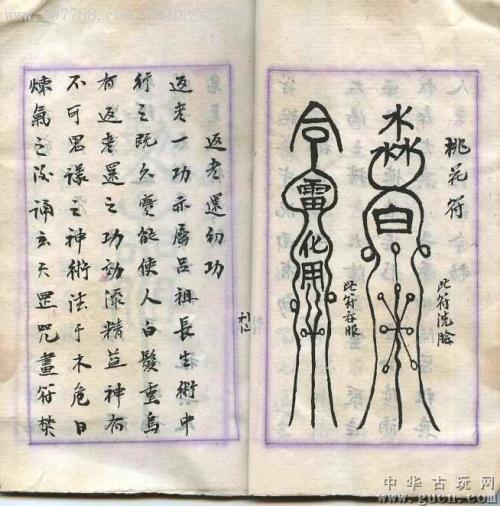 桃花符
此符洗臉
水
白
令
雷
化
用
此符吞服
返老還初功
返老一功亦屬吕祖長生術中
行之既久實能使人白髮重烏
有返老還之功効添精益神有
不可思議之神術法于木危日
煉氣之後誦玄天罡咒畫符焚
中华古玩网
www.gucn.com